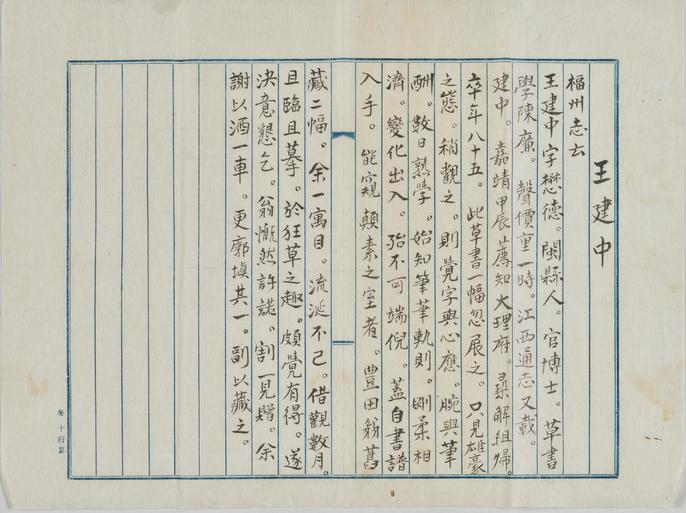 王建中
福州志云
王建中字懋德。閩縣人。官博士。草書
學陳廉。聲價重一時。江西通志又載。
建中。嘉靖甲辰薦知大理府。尋解組歸。
卒年八十五。此草書一幅忽展之。只見雄豪
之態。稍觀之。則覺字與心應。腕與筆
酬。數日熟學。始知筆筆軌則。剛柔相
濟。變化出入。殆不可端倪。蓋自書譜
入手。能窺顛素之室者。豐田翁舊
藏二幅。余一寓目。流涎不已。借觀數月。
且臨且摹。於狂草之趣。頗覺有得。遂
決意懇乞。翁慨然許諾。割一見贈。余
謝以酒一車。更廓填其一。副以藏之。
十行